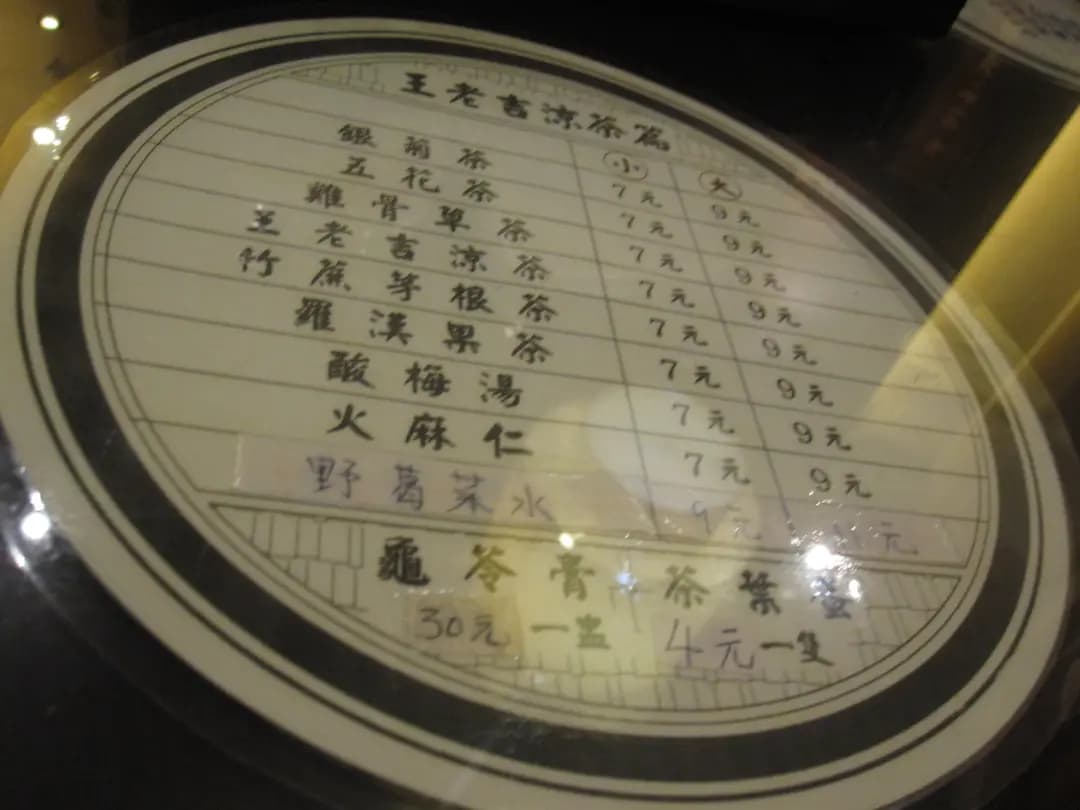 王老吉涼茶篇
小 大
銀菊茶 7元 9元
五花茶 7元 9元
雞骨草茶 7元 9元
王老吉涼茶 7元 9元
竹蔗茅根茶 7元 9元
羅漢果茶 7元 9元
酸梅湯 7元 9元
火麻仁 7元 9元
野葛菜水 9元 元
龜苓膏 茶葉蛋
30元一盅 4元一隻